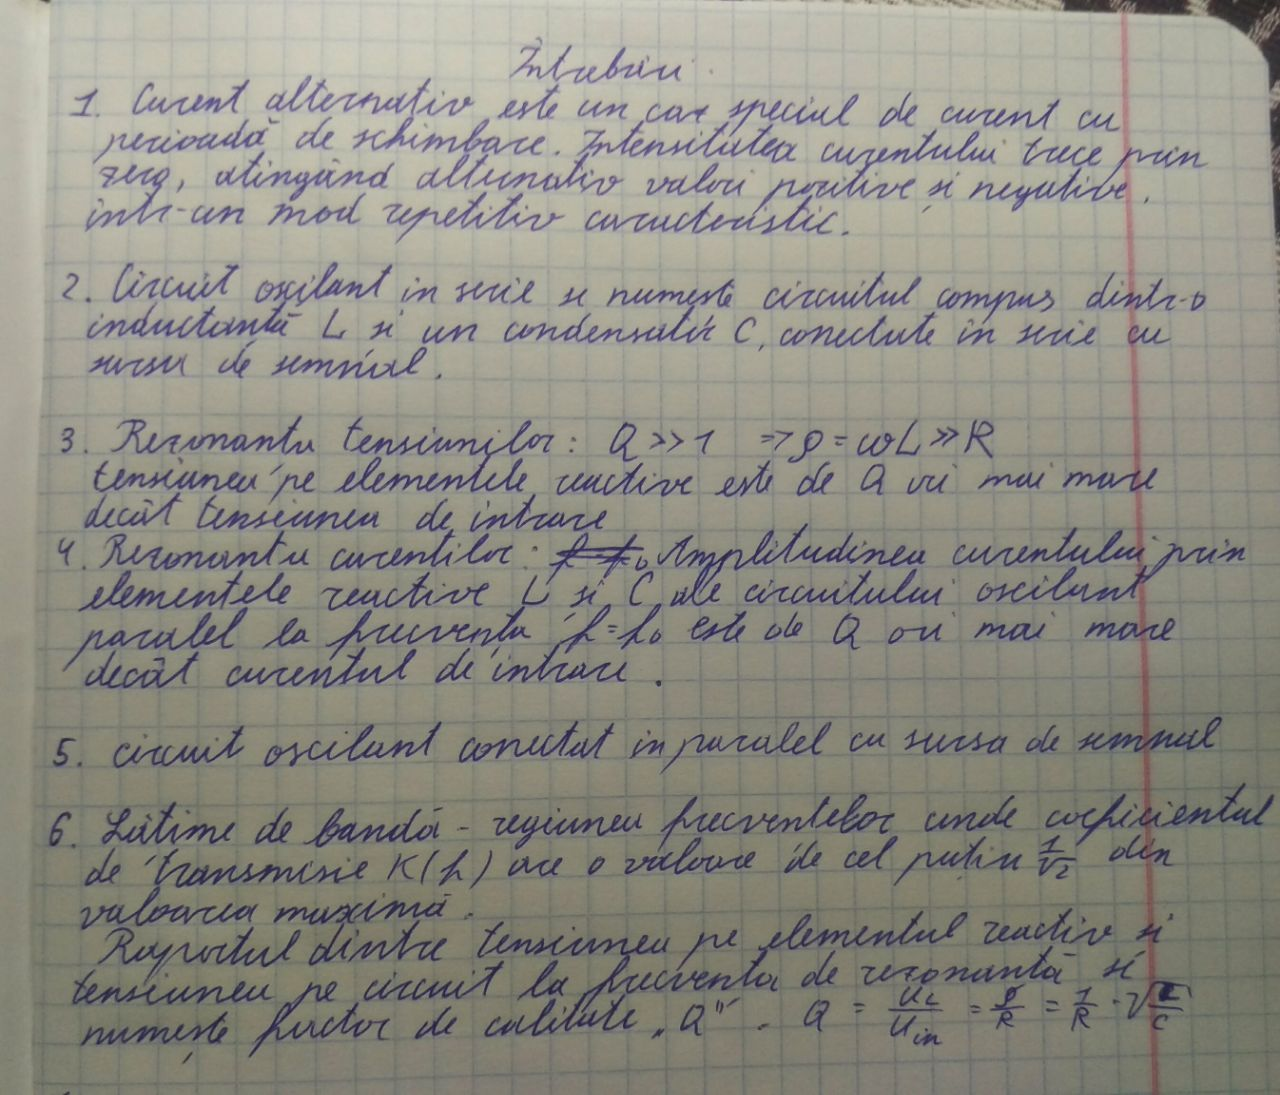 Întrebări.
1. Curent alternativ este un caz special de curent cu
perioadă de schimbare. Intensitatea curentului trece prin
zero, atingând alternativ valori pozitive și negative,
intr-un mod repetitiv caracteristic.
2. Circuit oscilant in serie se numește circuitul compus dintr-o
inductantă L si un condensator C, conectate in serie cu
sursa de semnal.
3. Rezonanta tensiunilor: Q >> 1 => ρ = ωL >> R
tensiunea pe elementele reactive este de Q ori mai mare
decât tensiunea de intrare
4. Rezonanta curentilor: Amplitudinea curentului prin
elementele reactive L si C ale circuitului oscilant
paralel la frecventa f=f₀ este de Q ori mai mare
decât curentul de intrare.
5. circuit oscilant conectat in paralel cu sursa de semnal
6. Lătime de bandă - regiunea frecventelor unde coeficientul
de transmisie K(f) are o valoare de cel puțin 1/√2 din
valoarea maximă.
Raportul dintre tensiunea pe elementul reactiv si
tensiunea pe circuit la frecventa de rezonantă se
numește factor de calitate „Q". Q = U_L/U_in = ρ/R = 1/R · √(L/C)